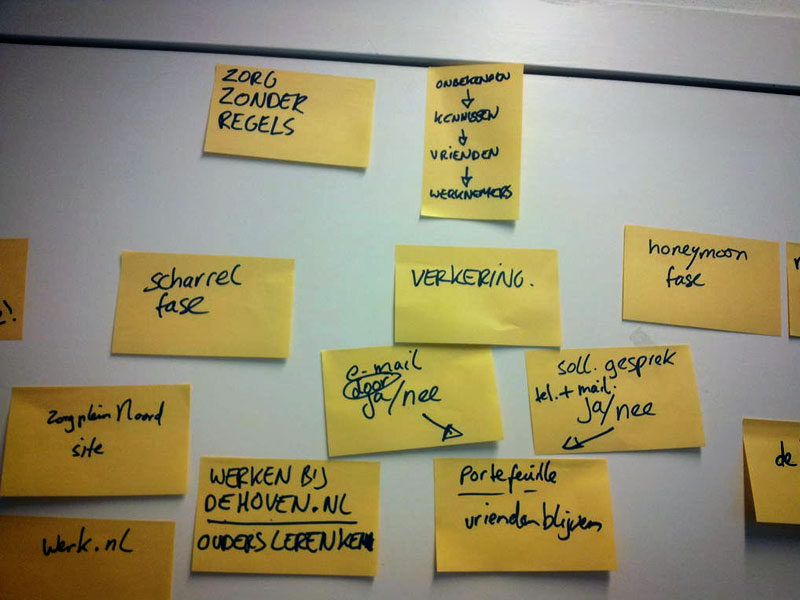 ZORG
ZONDER
REGELS
ONBEKENDEN
KENNISSEN
VRIENDEN
WERKNEMERS
scharrel
fase
VERKERING.
honeymoon
fase
e-mail
door
ja/nee
soll. gesprek
tel. + mail:
ja/nee
zorgplein Noord
site
WERKEN BIJ
DEHOVEN.NL
OUDERS LEREN KENN
portefeuille
vrienden blijven
werk.nl
de